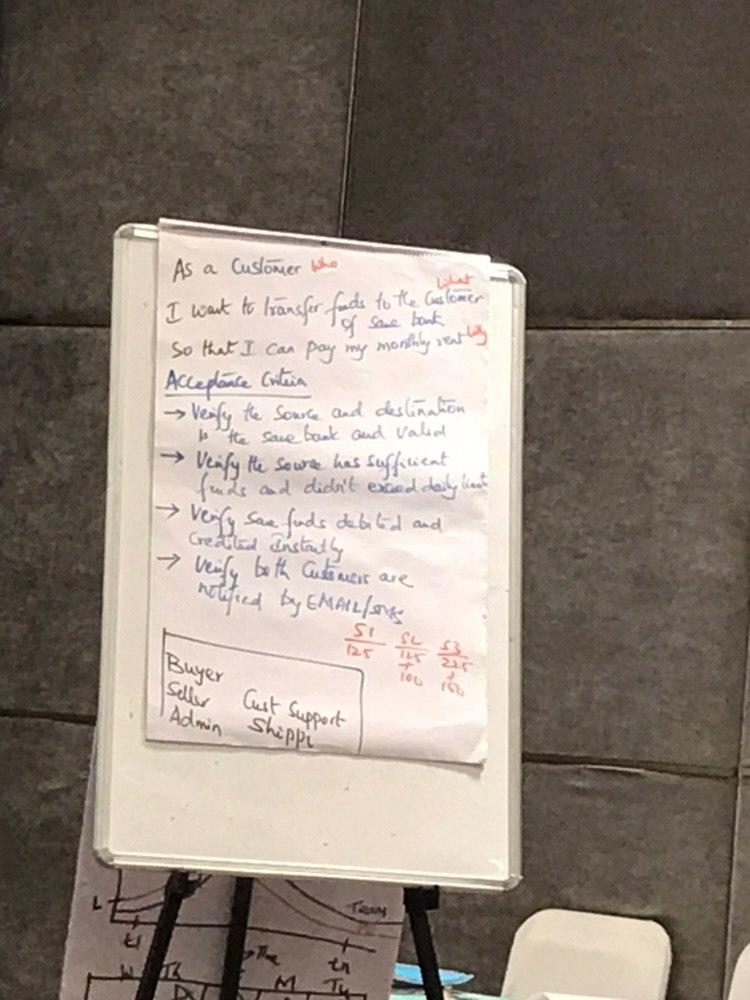 As a Customer who
what
I want to transfer funds to the Customer
of same bank
So that I can pay my monthly rent why
Acceptance Criteria
→ Verify the source and destination
is the same bank and valid
→ Verify the source has sufficient
funds and didn't exceed daily limit
→ Verify same funds debited and
credited instantly
→ Verify both Customers are
notified by EMAIL/sms
S1 S2 S3
125 125 225
+ +
100 100
Buyer
Seller Cust Support
Admin Shippi
L Team
t1 tn
W Th M Tu